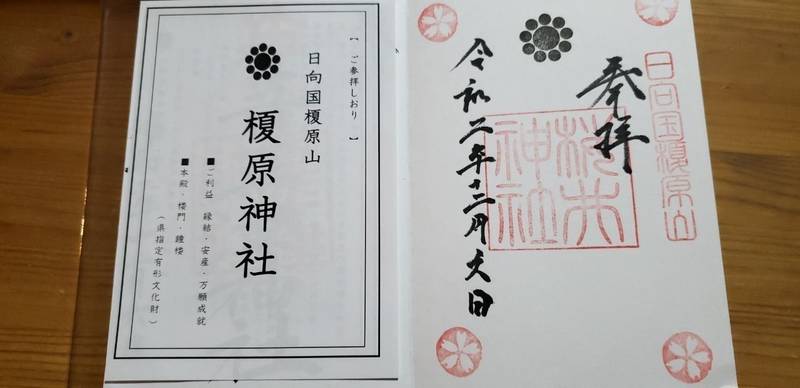 日向国榎原山
奉拝
神社
令和二年十二月六日
【ご参拝しおり】
日向国榎原山
榎原神社
■ご利益 縁結・安産・万願成就
■本殿・楼門・鐘楼
（県指定有形文化財）